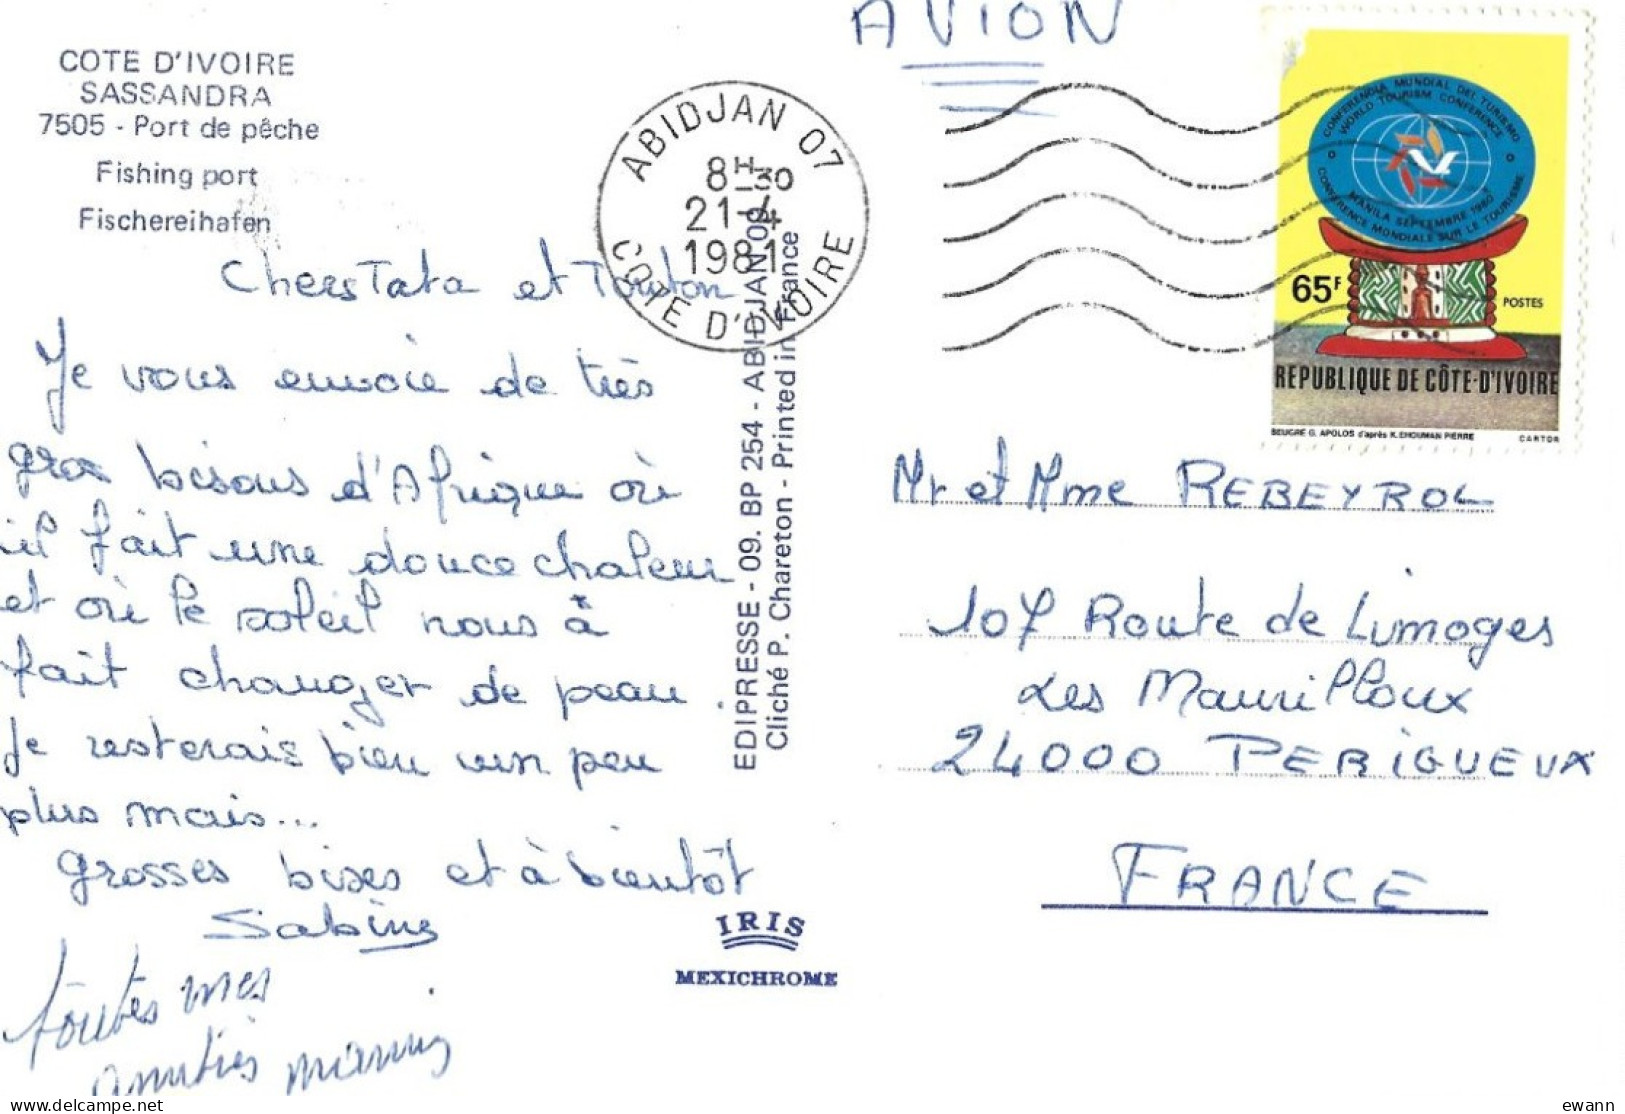 COTE D'IVOIRE
SASSANDRA
7505 - Port de pêche
Fishing port
Fischereihafen
Chers Tata et Tonton
Je vous envoie de très
gros bisous d'Afrique où
il fait une douce chaleur
et où le soleil nous à
fait changer de peau.
Je resterais bien un peu
plus mais...
grosses bises et à bientôt
Sabine
toutes mes
amitiés
EDIPRESSE - 09. BP 254 - ABIDJAN 09
Cliché P. Chareton - Printed in France
IRIS
MEXICHROME
AVION
ABIDJAN 07
8H-30
21-4
1981
COTE D'IVOIRE
CONFERENCIA MUNDIAL DEL TURISMO
WORLD TOURISM CONFERENCE
MANILA SEPTEMBRE 1980
CONFERENCE MONDIALE SUR LE TOURISME
65F
POSTES
REPUBLIQUE DE CÔTE-D'IVOIRE
BEUGRE G. APOLOS d'après K. EHOUMAN PIERRE
CARTOR
Mr et Mme REBEYROL
107 Route de Limoges
Les Maurilloux
24000 PERIGUEUX
FRANCE
ewann